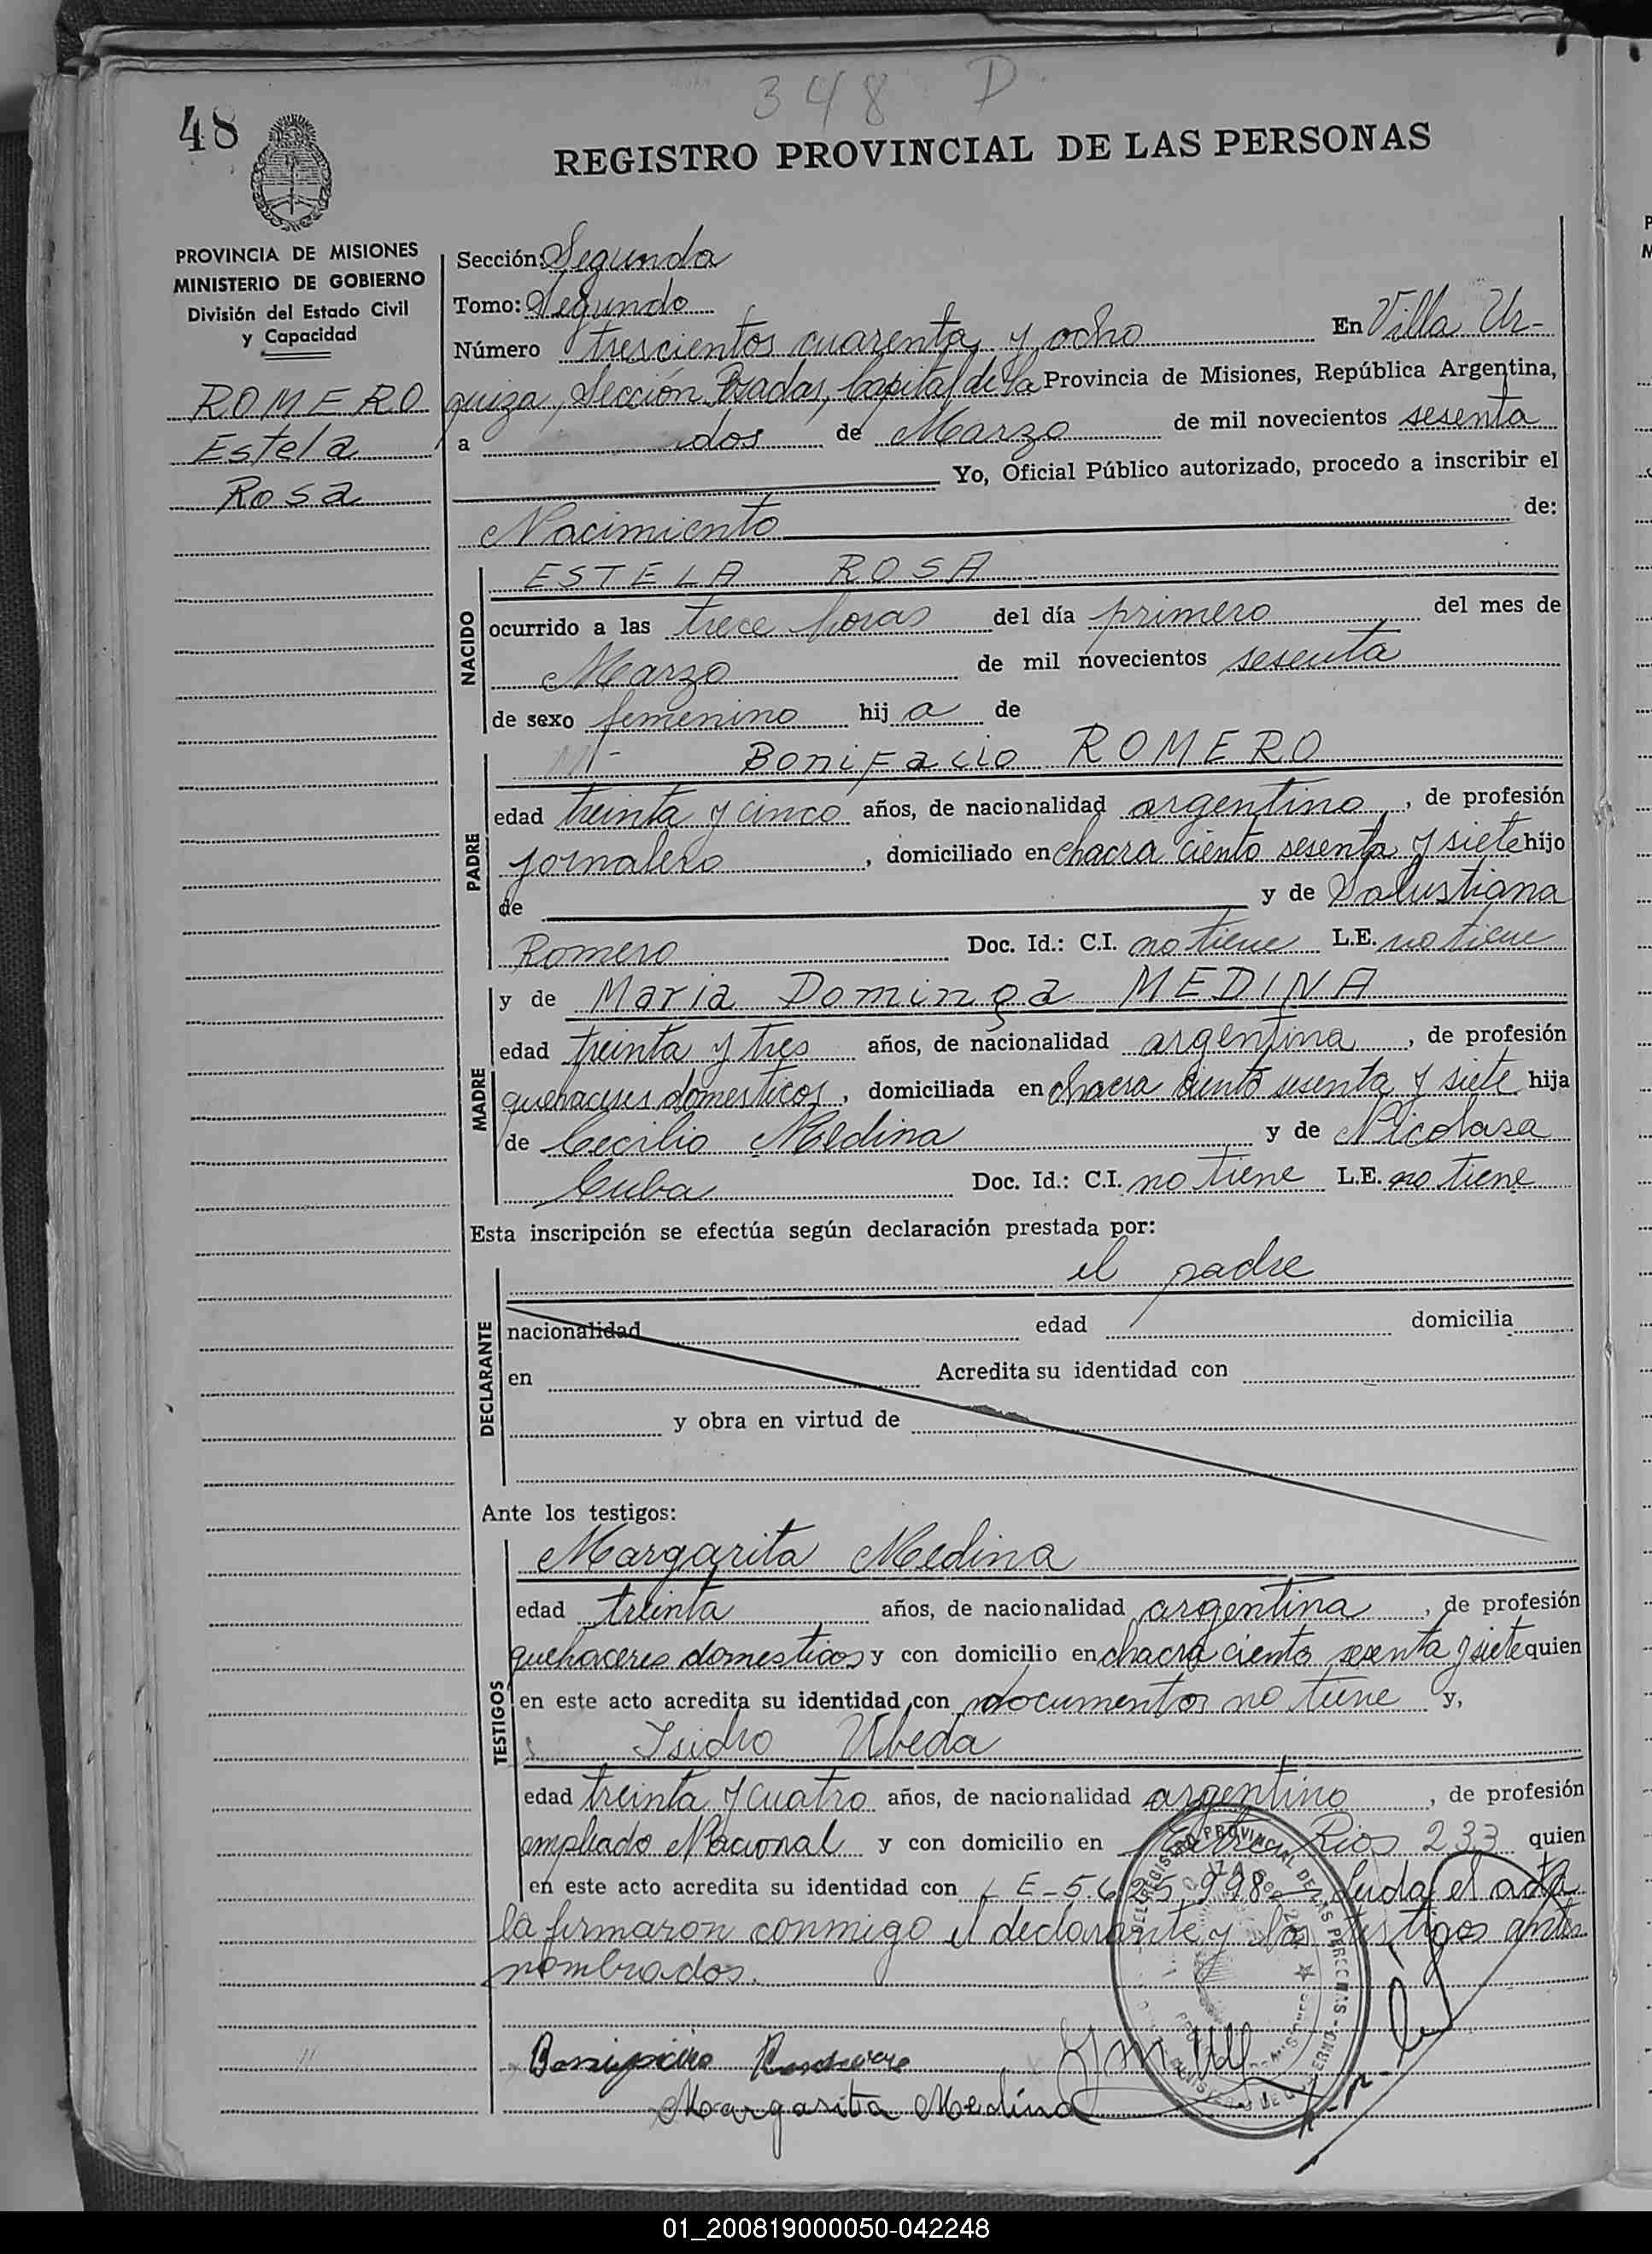 348 D
48
REGISTRO PROVINCIAL DE LAS PERSONAS
PROVINCIA DE MISIONES
MINISTERIO DE GOBIERNO
División del Estado Civil
y Capacidad
ROMERO
Estela
Rosa
Sección: Segunda
Tomo: Segundo
Número trescientos cuarenta y ocho En Villa Ur-
quiza, Sección Posadas, Capital de la Provincia de Misiones, República Argentina,
a dos de Marzo de mil novecientos sesenta
Yo, Oficial Público autorizado, procedo a inscribir el
Nacimiento de:
NACIDO
ESTELA ROSA
ocurrido a las trece horas del día primero del mes de
Marzo de mil novecientos sesenta
de sexo femenino hij a de
PADRE
Bonifacio ROMERO
edad treinta y cinco años, de nacionalidad argentino, de profesión
jornalero, domiciliado en chacra ciento sesenta y siete hijo
de y de Salustiana
Romero Doc. Id.: C.I. no tiene L.E. no tiene
MADRE
y de Maria Dominga MEDINA
edad treinta y tres años, de nacionalidad argentina, de profesión
quehaceres domesticos, domiciliada en chacra ciento sesenta y siete hija
de Cecilio Medina y de Nicolasa
Cuba Doc. Id.: C.I. no tiene L.E. no tiene
Esta inscripción se efectúa según declaración prestada por:
DECLARANTE
el padre
nacionalidad edad domicilia
en Acredita su identidad con
y obra en virtud de
Ante los testigos:
TESTIGOS
Margarita Medina
edad treinta años, de nacionalidad argentina, de profesión
quehaceres domesticos y con domicilio en chacra ciento sesenta y siete quien
en este acto acredita su identidad con documentos no tiene y,
Isidro Ubeda
edad treinta y cuatro años, de nacionalidad argentino, de profesión
empleado Nacional y con domicilio en Entre Rios 233 quien
en este acto acredita su identidad con L E-5.625.998- Leida el acta
la firmaron conmigo el declarante y los testigos antes
nombrados.
Bonifacio Romero
Margarita Medina
01_200819000050-042248